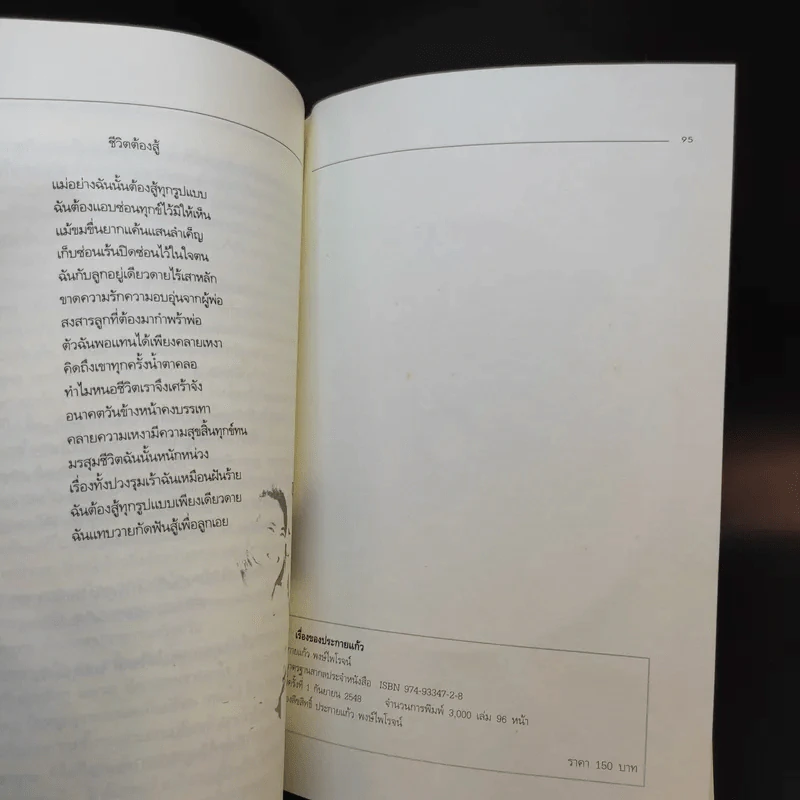 ชีวิตต้องสู้
แม่อย่างฉันนั้นต้องสู้ทุกรูปแบบ
ฉันต้องแอบซ่อนทุกข์ไว้มิให้เห็น
แม้ขมขื่นยากแค้นแสนลำเค็ญ
เก็บซ่อนเร้นปิดซ่อนไว้ในใจตน
ฉันกับลูกอยู่เดียวดายไร้เสาหลัก
ขาดความรักความอบอุ่นจากผู้พ่อ
สงสารลูกที่ต้องมากำพร้าพ่อ
ตัวฉันพอแทนได้เพียงคลายเหงา
คิดถึงเขาทุกครั้งน้ำตาคลอ
ทำไมหนอชีวิตเราจึงเศร้าจัง
อนาคตวันข้างหน้าคงบรรเทา
คลายความเหงามีความสุขสิ้นทุกข์ทน
มรสุมชีวิตฉันนั้นหนักหน่วง
เรื่องทั้งปวงรุมเร้าฉันเหมือนฝันร้าย
ฉันต้องสู้ทุกรูปแบบเพียงเดียวดาย
ฉันแทบวายกัดฟันสู้เพื่อลูกเอย
95
เรื่องของประกายแก้ว
กายแก้ว พงษ์ไพโรจน์
าตรฐานสากลประจำหนังสือ ISBN 974-93347-2-8
ครั้งที่ 1 กันยายน 2548 จำนวนการพิมพ์ 3,000 เล่ม 96 หน้า
ขสิทธิ์ ประกายแก้ว พงษ์ไพโรจน์
ราคา 150 บาท